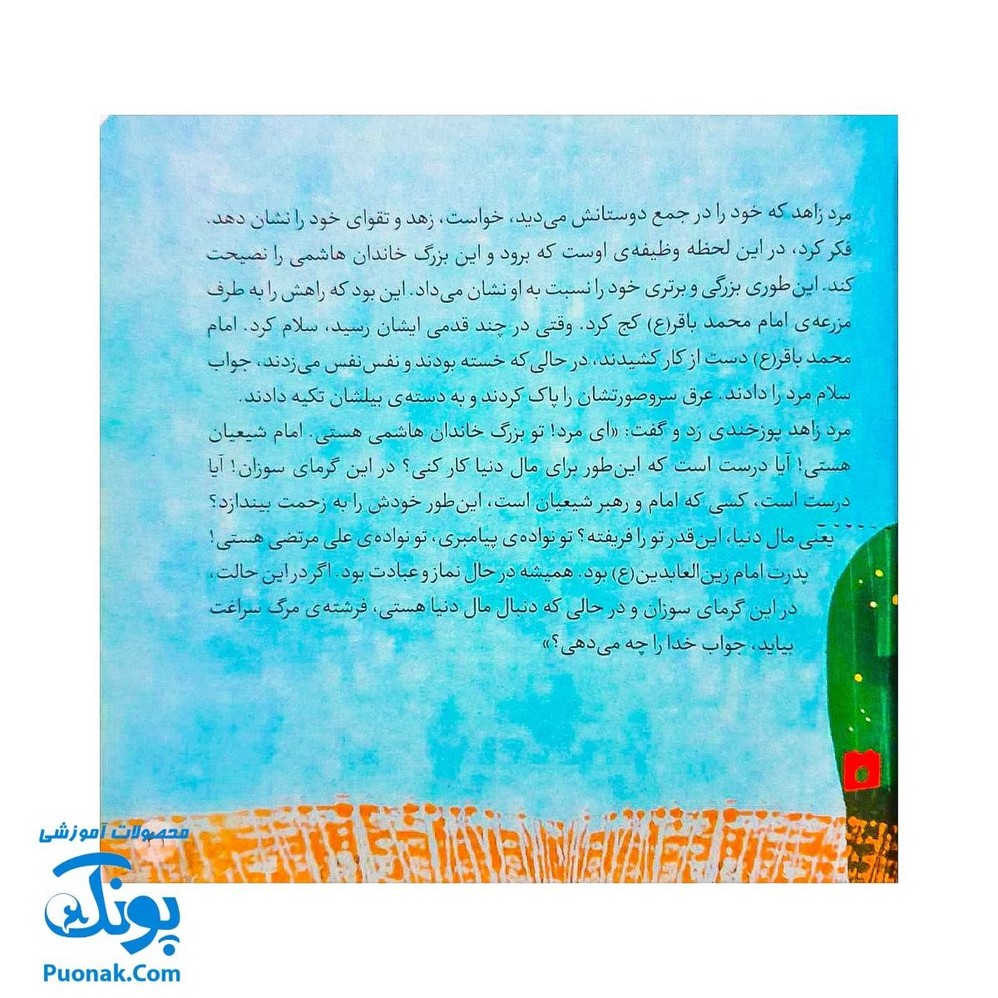 مرد زاهد که خود را در جمع دوستانش می‌دید، خواست، زهد و تقوای خود را نشان دهد.
فکر کرد، در این لحظه وظیفه‌ی اوست که برود و این بزرگ خاندان هاشمی را نصیحت
کند. این‌طوری بزرگی و برتری خود را نسبت به او نشان می‌داد. این بود که راهش را به طرف
مزرعه‌ی امام محمد باقر(ع) کج کرد. وقتی در چند قدمی ایشان رسید، سلام کرد. امام
محمد باقر(ع) دست از کار کشیدند، در حالی‌که خسته بودند و نفس‌نفس می‌زدند، جواب
سلام مرد را دادند. عرق سروصورتشان را پاک کردند و به دسته‌ی بیلشان تکیه دادند.
مرد زاهد پوزخندی زد و گفت: «ای مرد! تو بزرگ خاندان هاشمی هستی. امام شیعیان
هستی! آیا درست است که این‌طور برای مال دنیا کار کنی؟ در این گرمای سوزان! آیا
درست است، کسی که امام و رهبر شیعیان است، این‌طور خودش را به زحمت بیندازد؟
یعنی مال دنیا، این‌قدر تو را فریفته؟ تو نواده‌ی پیامبری، تو نواده‌ی علی مرتضی هستی!
پدرت امام زین‌العابدین(ع) بود. همیشه در حال نماز و عبادت بود. اگر در این حالت،
در این گرمای سوزان و در حالی که دنبال مال دنیا هستی، فرشته‌ی مرگ سراغت
بیاید، جواب خدا را چه می‌دهی؟»
۵
محصولات آموزشی
پونک
Puonak.Com